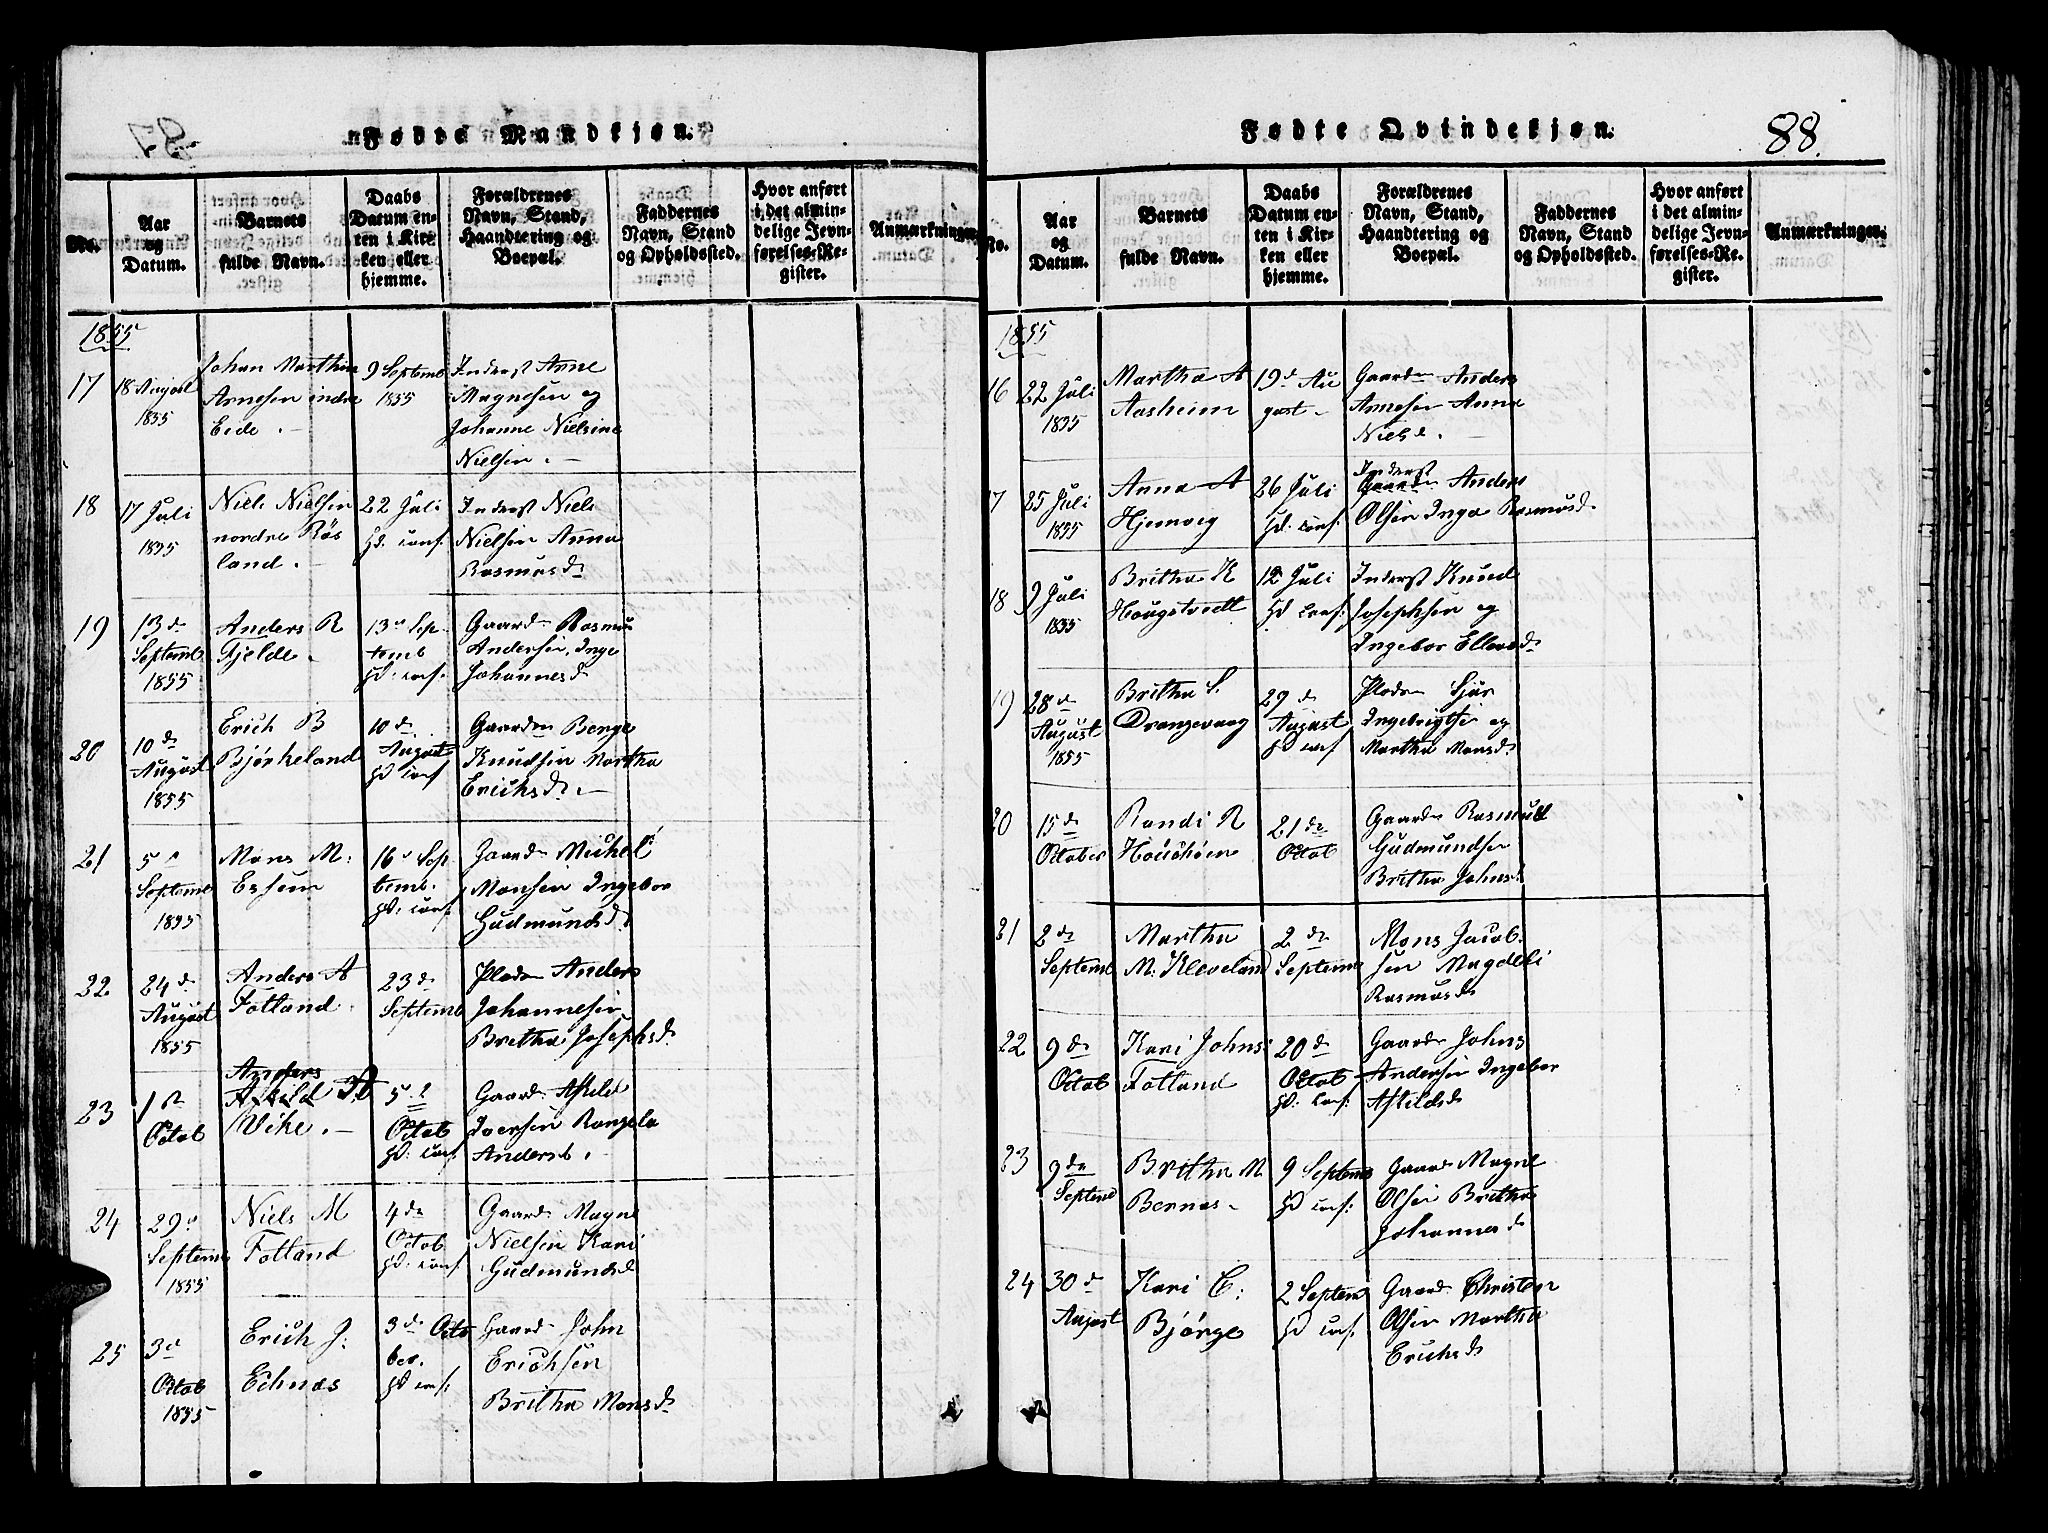 Fødte Mandkjøn.
No.
Aar
og
Datum.
Barnets
fulde Navn.
Daabs
Datum en-
ten i Kir-
ken eller
hjemme.
Forældrenes
Navn, Stand,
Haandtering og
Boepæl.
Faddernes
Navn, Stand
og Opholdssted.
Hvor anført
i det almin-
delige Jevn-
førelses-Re-
gister.
Anmærkninger.
1855
17
18 August
1855
Johan Marthin
Arnesen indre
Eide. -
9 Septemb
1855
Inderst Arne
Magnesen og
Johanne Nielsine
Nielsen. -
18
17 Juli
1855
Niels Nielsen
nordre Røs
land. -
22 Juli
hd. conf.
Inderst Niels
Nielsen Anna
Rasmusd.
19
13 de
Septemb
1855
Anders R
Fjelde.
13 Sep-
temb
hd: conf.
Gaardm Rasmus
Andersen. Inge
Johannesd
20
10 de
August
1855
Erich B
Bjørkeland
10 de
August
hd conf
Gaardm Berge
Knudsen Martha
Erichsd. -
21
5
Septemb
1855
Mons M:
Esheim
16 Sep-
temb.
hd: conf.
Gaardm Michel
Monsen Ingebor
Gudmundsd.
22
24 de
August
1855
Anders A
Fotland.
23 de
Septemb
Pladsm Anders
Johannesen
Britha Josephsd.
23
1
Octob
Anders
Askild A
Vike. -
5
Octob
hd. conf.
Gaardm Askild
Iversen Rangela
Andersd.
24
29
Septemb
1855
Niels M
Fotland
4 de
Octob
hd: conf
Gaardm Magne
Nielsen Kari
Gudmundsd
25
3 d
Octob
1855
Erich J.
Echnæs
3 de Octo
ber.
hd conf.
Gaardm John
Erichsen
Britha Monsd
Fødte Qvindekjøn.
88.
No.
Aar
og
Datum.
Barnets
fulde Navn.
Daabs
Datum en-
ten i Kir-
ken eller
hjemme.
Forældrenes
Navn, Stand,
Haandtering og
Boepæl.
Faddernes
Navn, Stand
og Opholdssted.
Hvor anført
i det almin-
delige Jevn-
førelses-Re-
gister.
Anmærkninger.
1855
16
22 Juli
1855
Martha A
Aasheim
19 d Au
gust -
Gaardm Anders
Arnesen Anna
Nielsd. -
17
25 Juli
1855
Anna A
Hjemveg
26 Juli
hd. conf.
Inderst
Gaardm Anders
Olsen Inga Rasmusd
18
9 Juli
1855
Britha K
Hougstvedt
12 Juli
hd conf:
Inderst Knud
Josephsen og
Ingebor Ellevsd
19
28 de
August
1855
Britha S.
Drangevaag
29 de
August
hd conf
Pladsm Sjur
Ingebrigtsen og
Martha Monsd.
20
15 de
October
Randi R
21 de
Octob
Gaardm Rasmus
Gudmundsen
Britha Johnsd
21
2 de
Septemb
Martha
M: Kleveland
2 de
Septemb
Mons Jacob-
sen Magdeli
Rasmusd
22
9 de
Octob
Kari Johns:
Fotland
20 de
Octob
hd: conf:
Gaardm Johns
Andersen Ingebor
Askildsd
23
9 de
Septemb
Britha M
Bernæs -
9 Septemb
hd conf:
Gaardm Magne
Olsen Britha
Johannesd
24
30 d
August
Kari C:
Bjørge
2 Septemb
hd conf.
Gaardm Christen
Olsen Martha
Erichsd